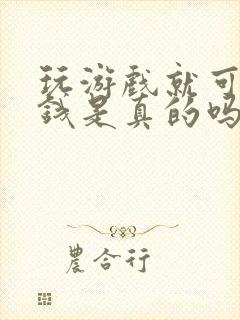 玩游戏就可
钱是真的吗
農合行